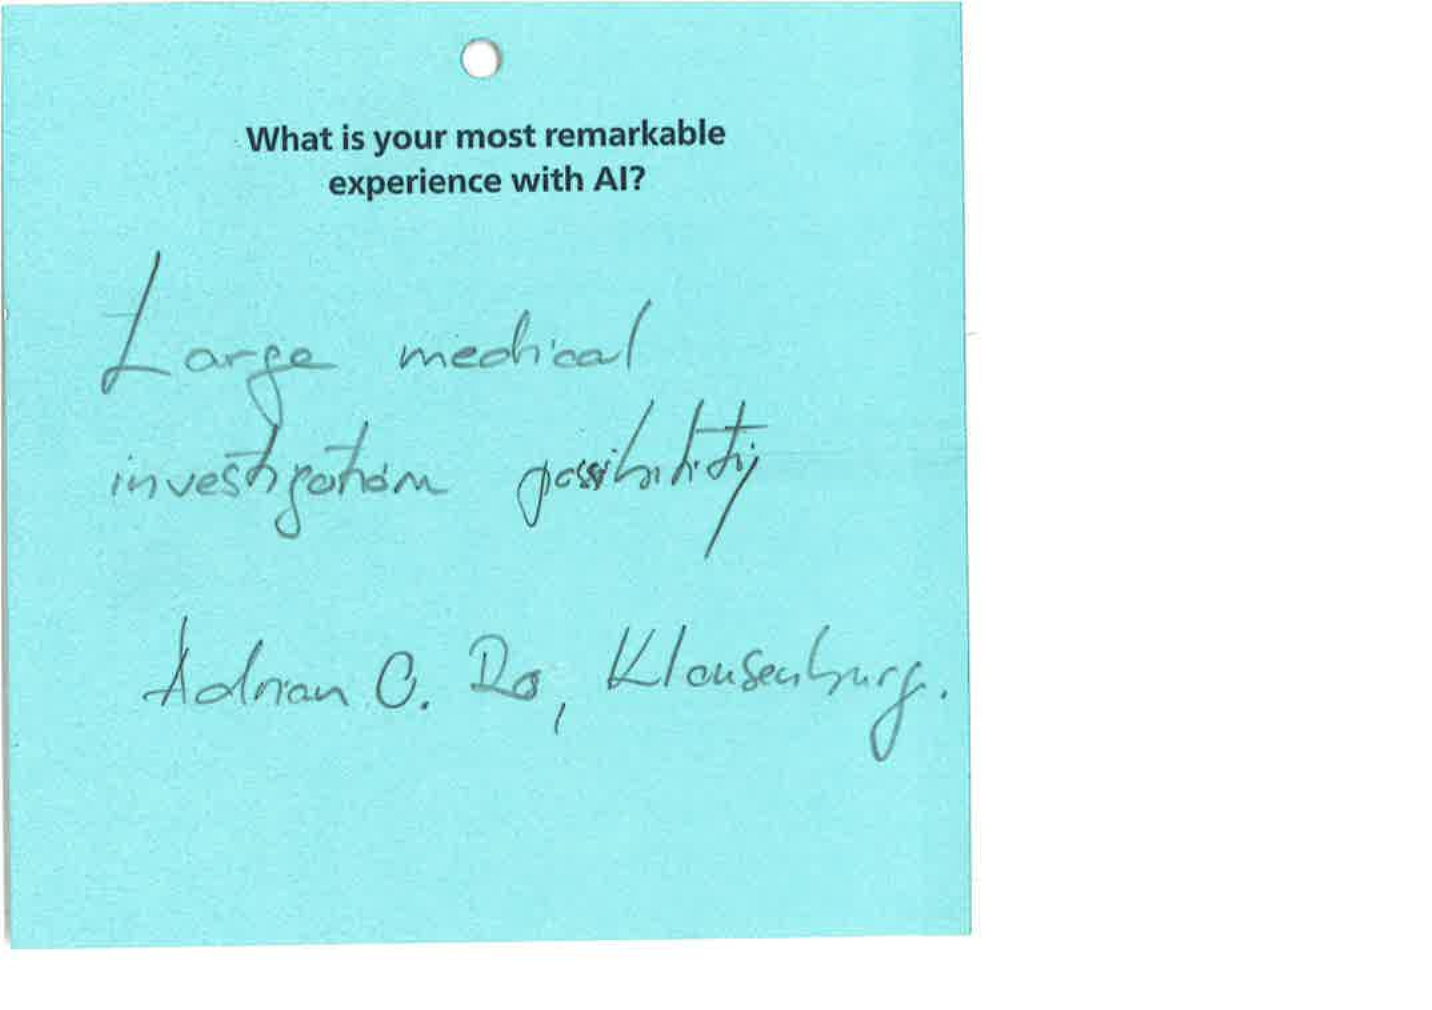 What is your most remarkable
experience with AI?
Large medical
investigation possibility
Adrian C. Ro, Klausenburg.